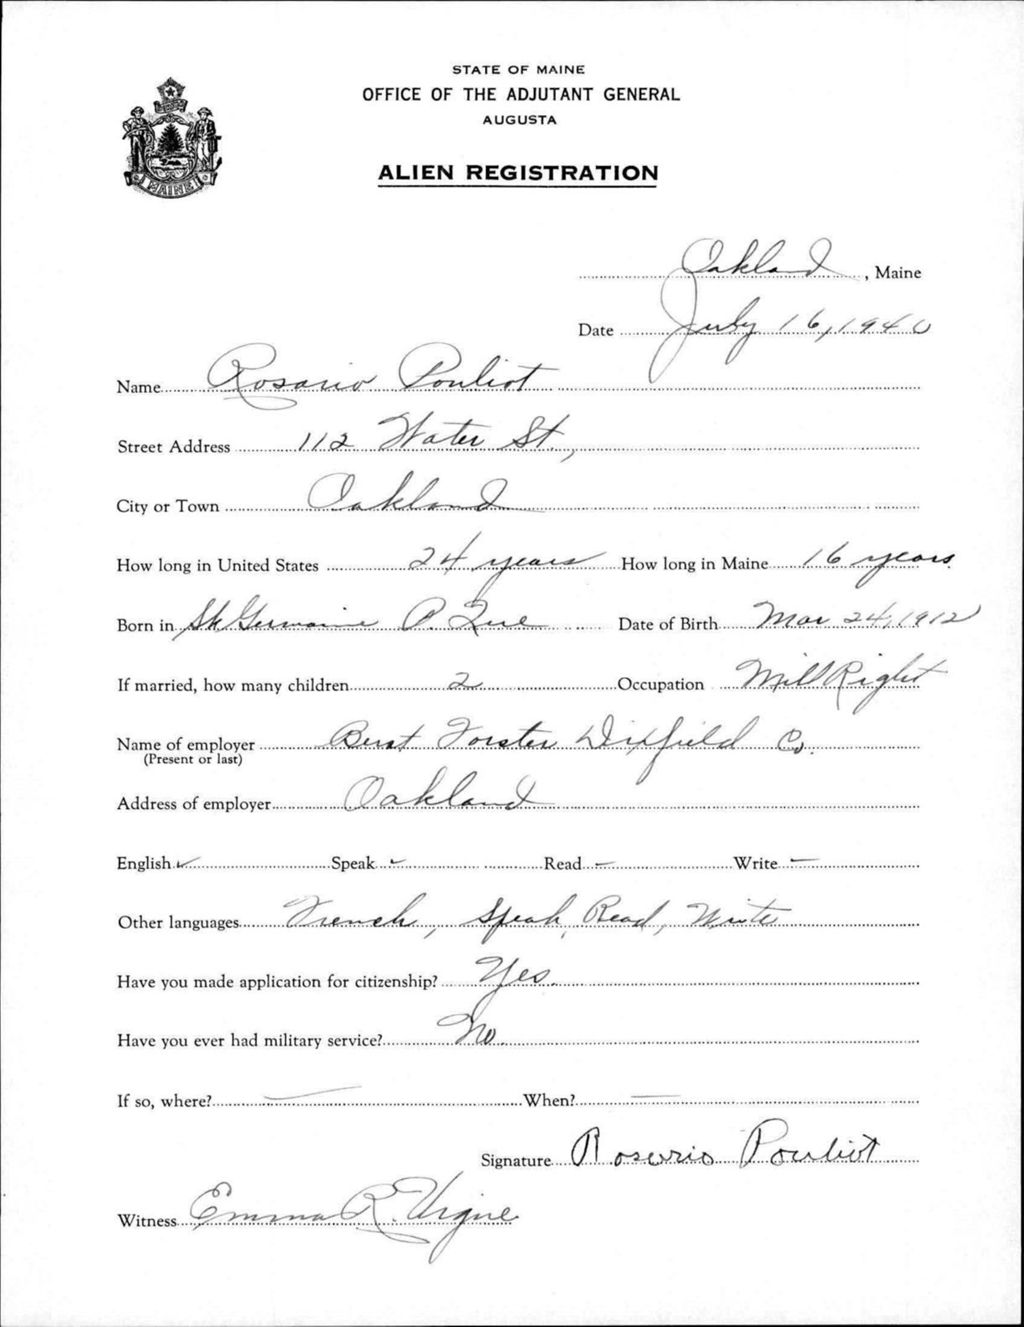 STATE OF MAINE
OFFICE OF THE ADJUTANT GENERAL
AUGUSTA
ALIEN REGISTRATION
MAINE
Oakland, Maine
Date July 16, 1940
Name Rosario Pouliot
Street Address 112 Water St.,
City or Town Oakland
How long in United States 24 years How long in Maine 16 years
Born in St Germaine P. Que Date of Birth Mar 24, 1912
If married, how many children 2 Occupation Mill Right
Name of employer Forster Co.
(Present or last)
Address of employer Oakland
English ✓ Speak ✓ Read — Write —
Other languages French, Speak, Read, Write
Have you made application for citizenship? Yes
Have you ever had military service? No
If so, where? — When? —
Signature Rosario Pouliot
Witness Emma R. Vigue